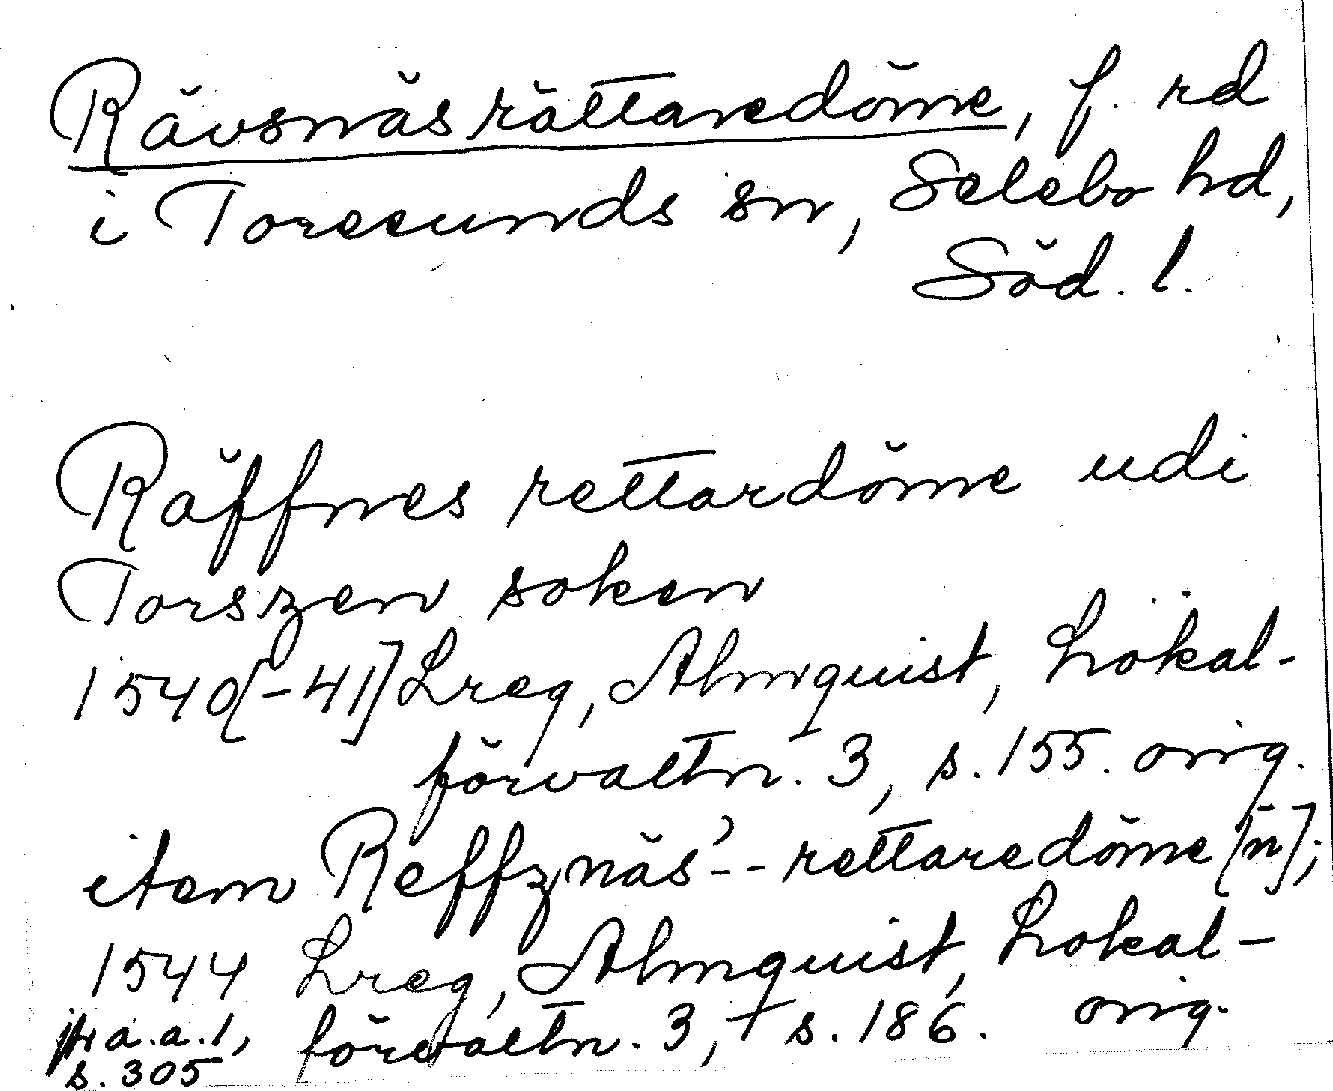 Rävsnäs rättaredöme, f. rd
i Toresunds sn, Selebo hd,
Söd. l.
Räffnes rettardöme udi
Torszen soken
1540[-41] Lreg, Almquist, Lokal-
förvaltn. 3, s. 155. orig.
item Reffznäs -- rettaredöme [n];
1544 Lreg, Almquist, Lokal-
förvaltn. 3, s. 186. orig.
jfr a.a. 1,
s. 305